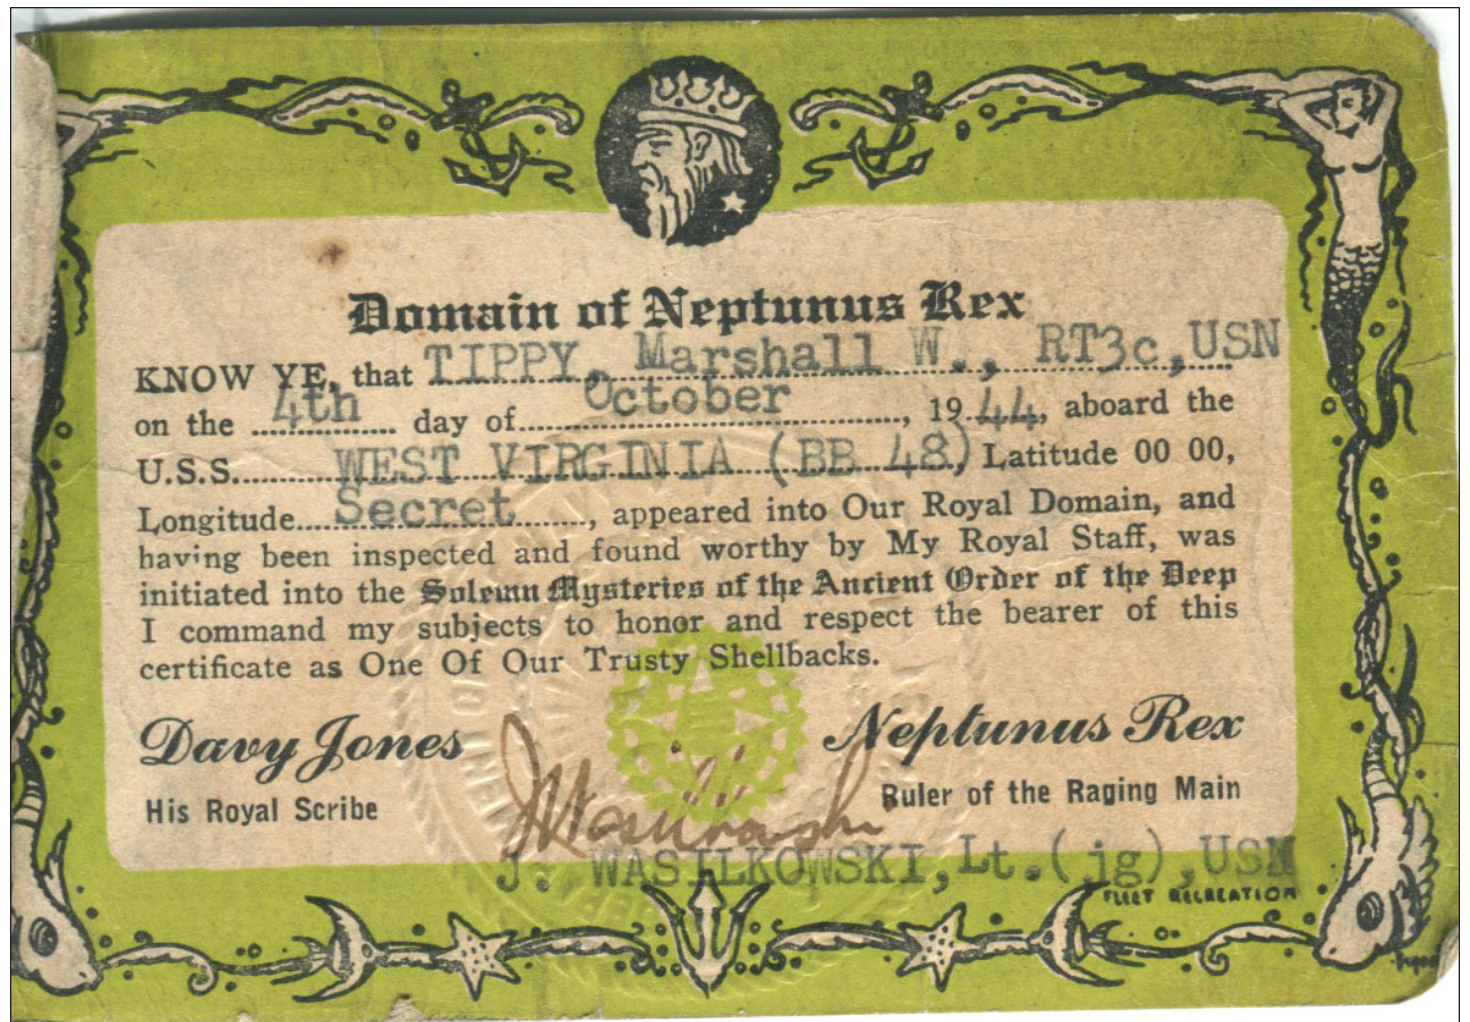 Domain of Neptunus Rex
KNOW YE, that TIPPY, Marshall W., RT3c,USN
on the 4th day of October, 1944, aboard the
U.S.S. WEST VIRGINIA (BB 48), Latitude 00 00,
Longitude Secret, appeared into Our Royal Domain, and
having been inspected and found worthy by My Royal Staff, was
initiated into the Solemn Mysteries of the Ancient Order of the Deep
I command my subjects to honor and respect the bearer of this
certificate as One Of Our Trusty Shellbacks.
Davy Jones
His Royal Scribe
Neptunus Rex
Ruler of the Raging Main
J. WASILKOWSKI, Lt.(jg),USN
FLEET RECREATION